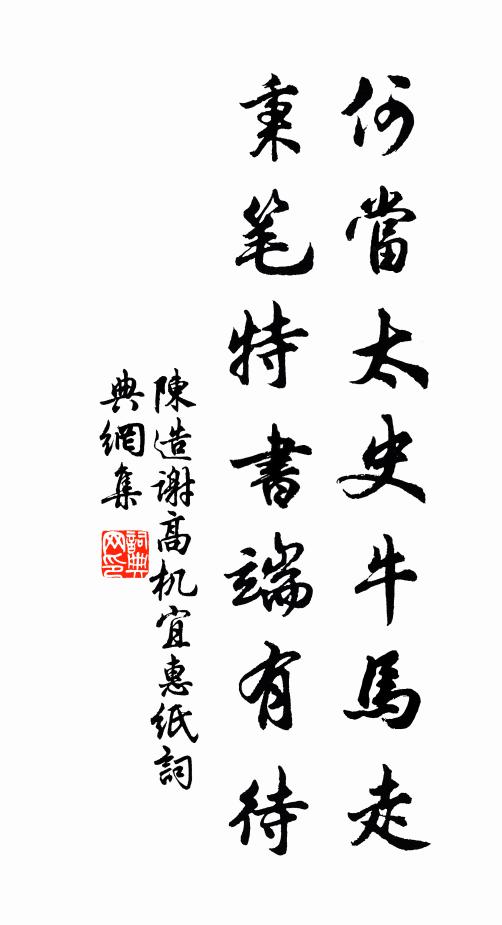 何當太史牛馬走
秉笔特書端有待
陳造謝高机宜惠紙詞
典網集
詞典
网印